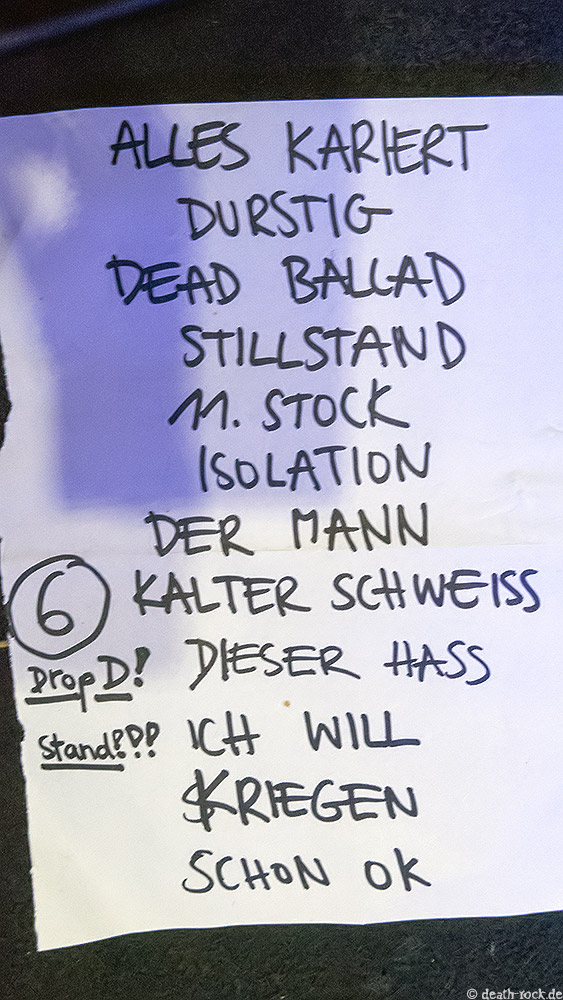 ALLES KARIERT
DURSTIG
DEAD BALLAD
STILLSTAND
11. STOCK
ISOLATION
DER MANN
6 KALTER SCHWEISS
Drop D! DIESER HASS
Stand!?? ICH WILL
KRIEGEN
SCHON OK
© death-rock.de